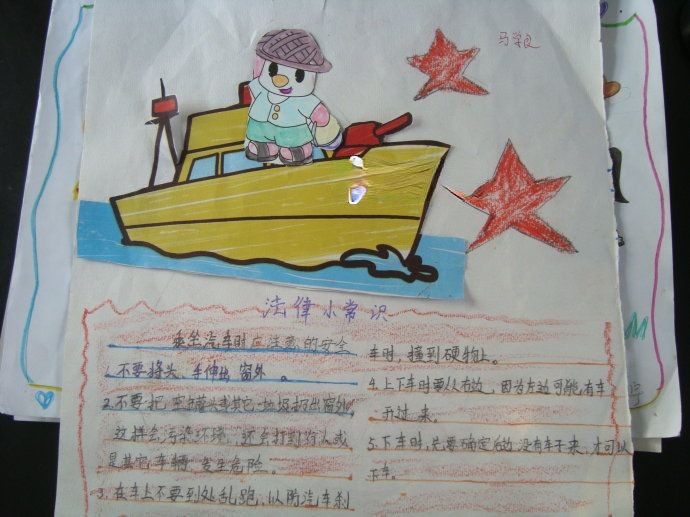 马学良
法律小常识
乘坐汽车时应注意的安全
1.不要将头、手伸出窗外。
2.不要把空罐头或其它垃圾扔出窗外,
这样会污染环境,还会打到行人或
是其它车辆,发生危险。
3.在车上不要到处乱跑,以防汽车刹
车时,撞到硬物上。
4.上下车时要从右边,因为左边可能有车
开过来。
5.下车时,要确定后边没有车子来,才可以
下车。